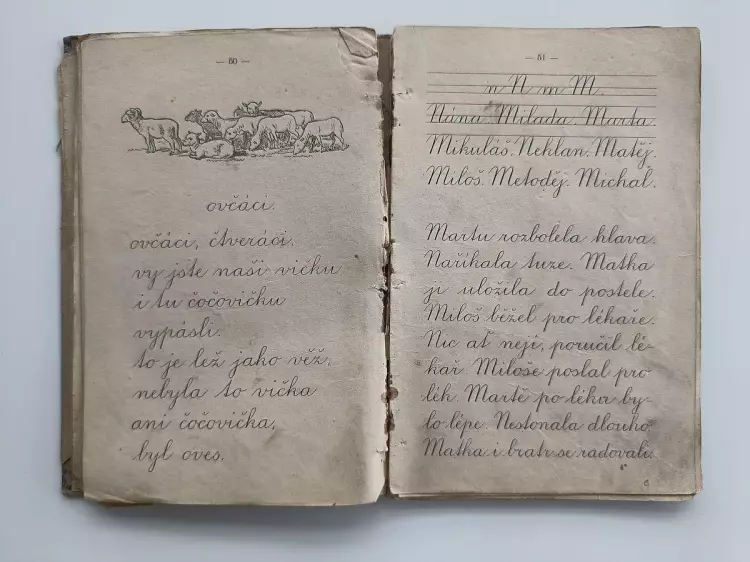 — 50 —
ovčáci.
ovčáci, čtveráci,
vy jste naši vičku
i tu čočovičku
vypásli.
to je lež jako věž,
nebyla to vička
ani čočovička,
byl oves.
— 51 —
n N m M.
Nána. Milada. Marta.
Mikuláš. Neklan. Matěj.
Miloš. Metoděj. Michal.
Martu rozbolela hlava.
Naříkala tuze. Matka
ji uložila do postele.
Miloš běžel pro lékaře.
Nic ať nejí, poručil lé-
kař. Miloše poslal pro
lék. Martě po léku by-
lo lépe. Nestonala dlouho.
Matka i bratr se radovali.
6